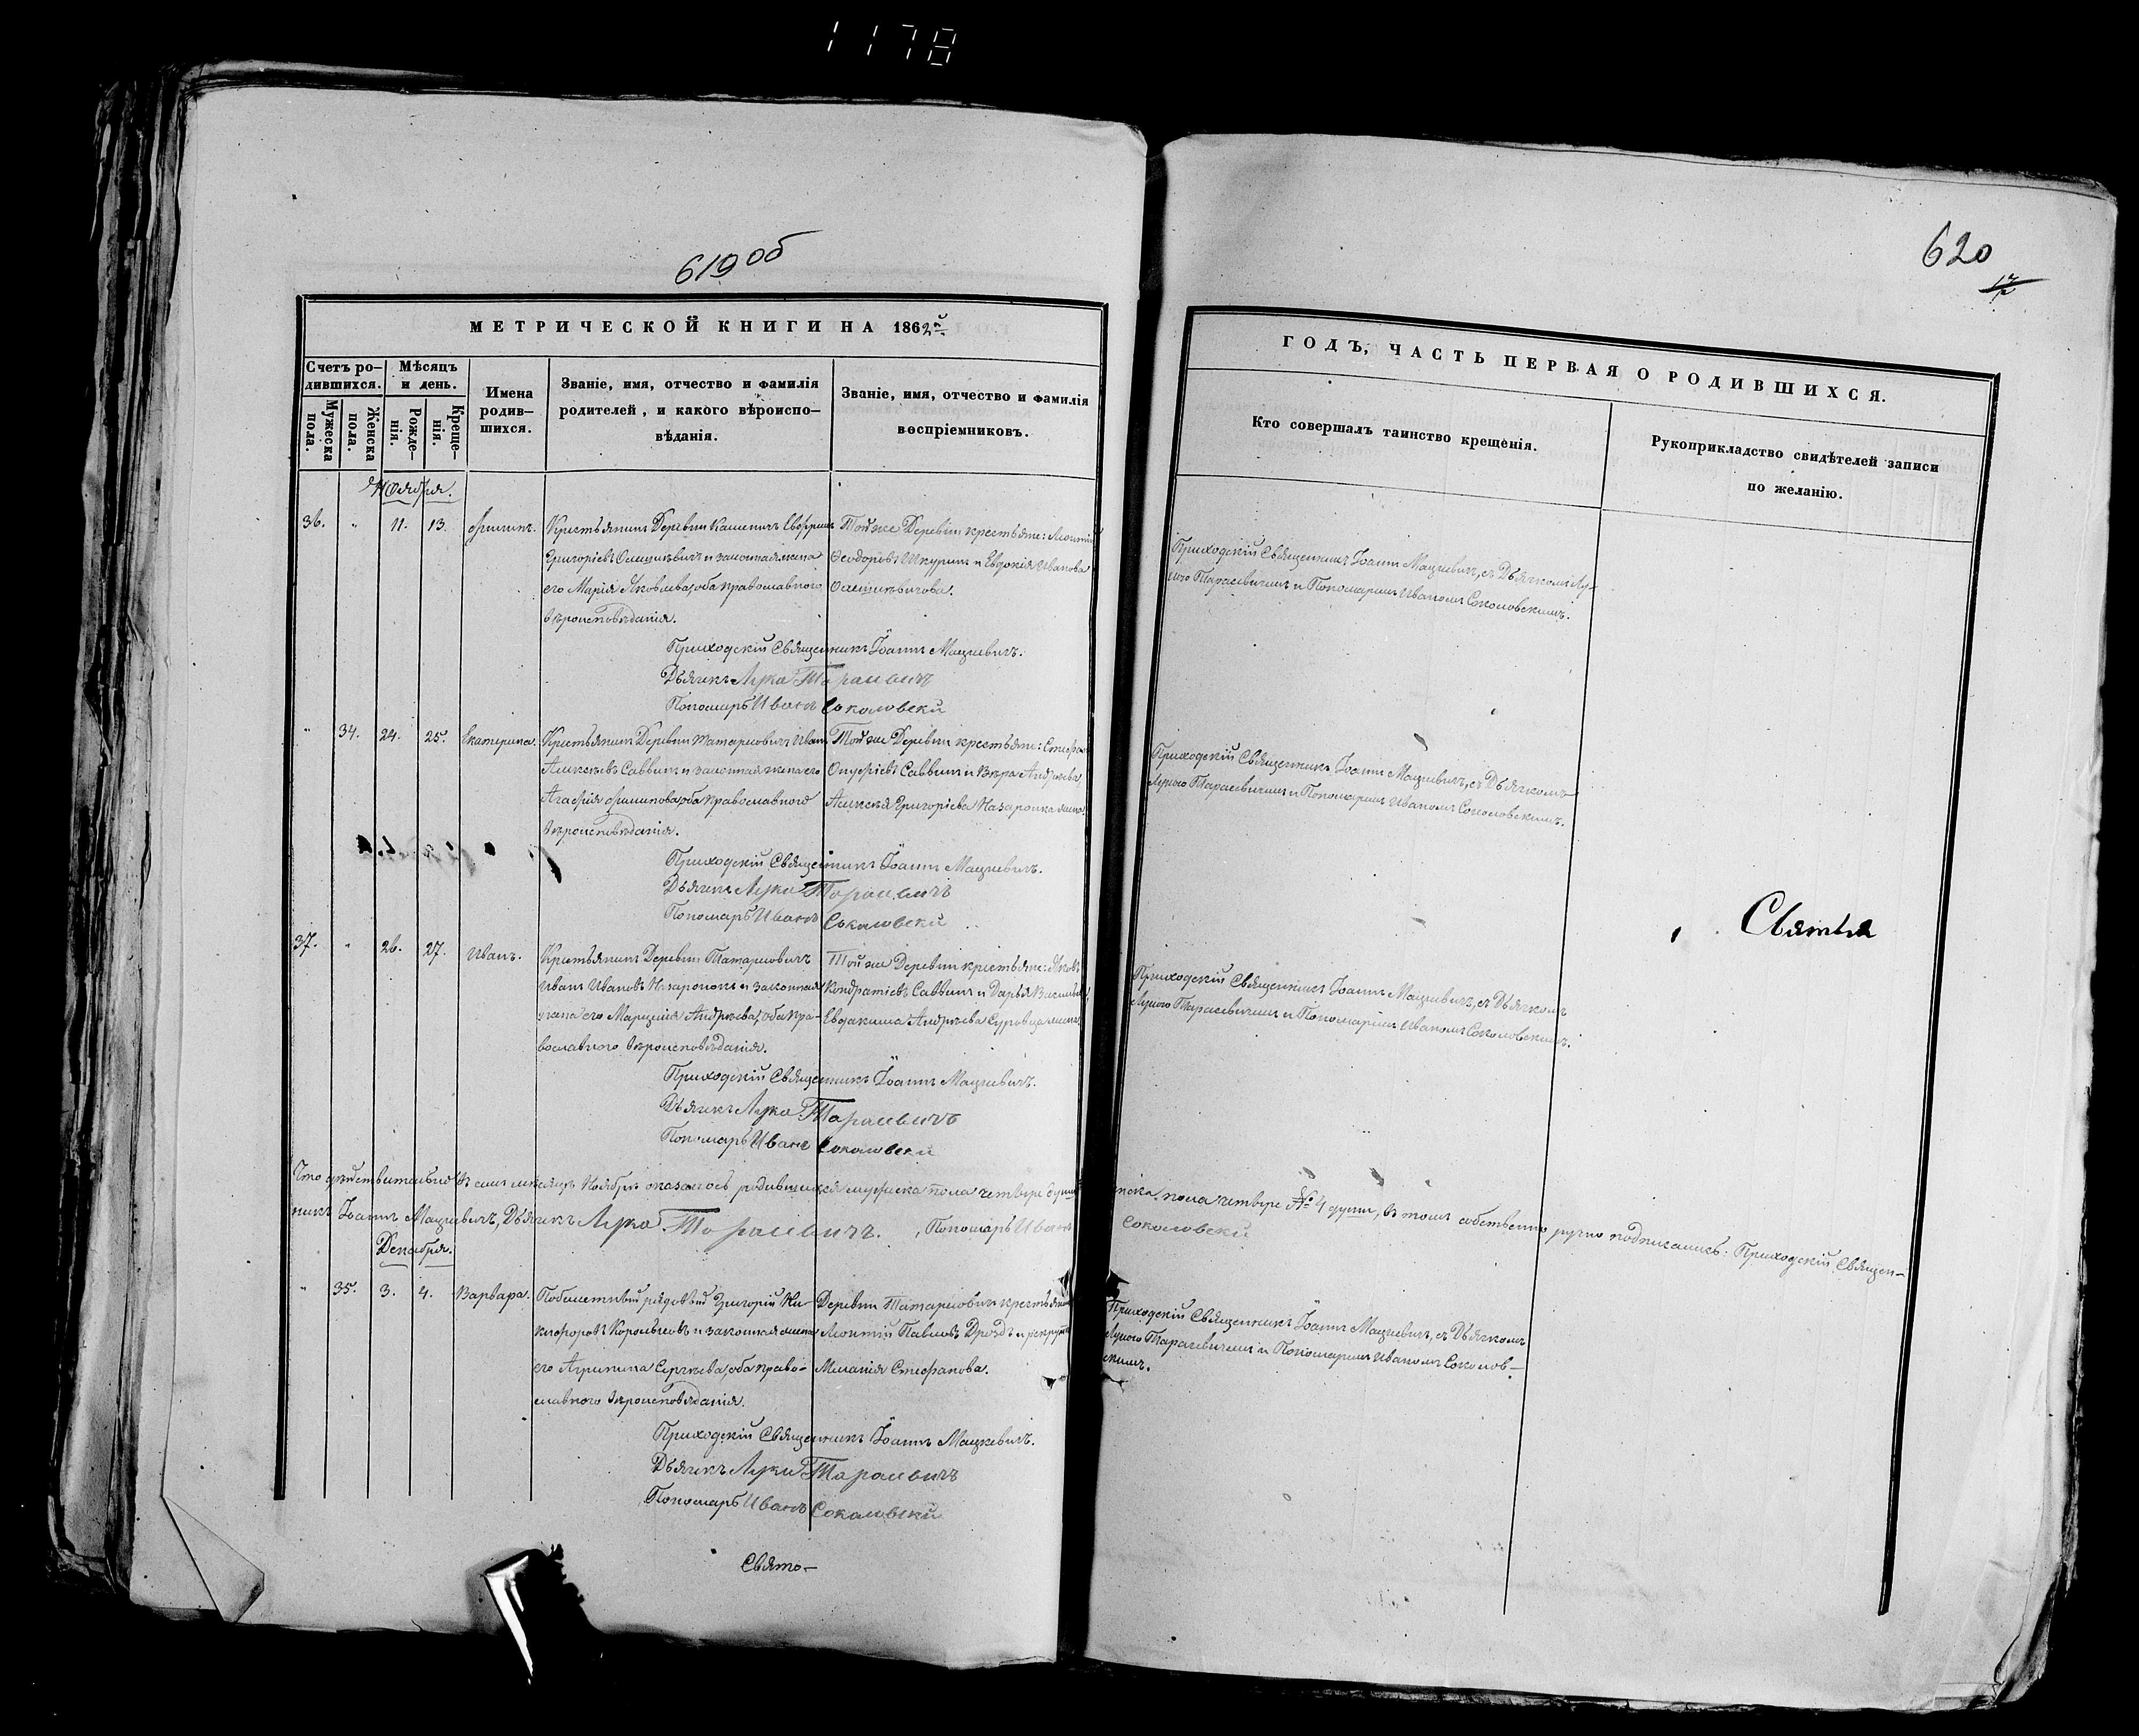 1178
619 об
МЕТРИЧЕСКОЙ КНИГИ НА 1862й
Счетъ ро-
дившихся.
Мужеска
пола.
Женска
пола.
Мѣсяцъ
и день.
Рожде-
нія.
Креще-
нія.
Имена
родив-
шихся.
Званіе, имя, отчество и фамилія
родителей, и какого вѣроиспо-
вѣданія.
Званіе, имя, отчество и фамилія
воспріемниковъ.
Ноября.
36. " 11. 13. Филипъ.
Крестьянинъ Деревни
Григорьевъ и законная жена
его Марія Яковлева, оба православнаго
вѣроисповѣданія.
Той же Деревни крестьяне: Леонтій
Феодоровъ Шкуринъ и Евдокія Иванова
Приходскій Священникъ Іоаннъ Мацкевичъ.
Дьячекъ Лука Тарасевичъ
Пономарь Иванъ Соколовскій
" 34. 24. 25. Екатерина.
Крестьянинъ Деревни Татарновичъ Иванъ
Алексѣевъ Саввинъ и законная жена его
Агафія Филипова, оба православнаго
вѣроисповѣданія.
Той же Деревни крестьяне: Стефанъ
Онуфріевъ Саввинъ и Вѣра Андреева,
Алексѣя Григорьева Назаронка жена.
Приходскій Священникъ Іоаннъ Мацкевичъ.
Дьячекъ Лука Тарасевичъ
Пономарь Иванъ Соколовскій
37. " 26. 27. Иванъ.
Крестьянинъ Деревни Татарновичъ
Иванъ Ивановъ Назаронокъ и законная
жена его Андреева, оба пра-
вославнаго вѣроисповѣданія.
Той же Деревни крестьяне: Яковъ
Кондратіевъ Саввинъ и Дарья
Андреева жена.
Приходскій Священникъ Іоаннъ Мацкевичъ.
Дьячекъ Лука Тарасевичъ
Пономарь Иванъ Соколовскій
Что дѣйствительно въ семъ мѣсяцѣ Ноябрѣ оказалось родившихся мужеска пола четверо
никъ Іоаннъ Мацкевичъ, Дьячекъ Лука Тарасевичъ. Пономарь Иванъ
Декабря.
" 35. 3. 4. Варвара.
рядовый Григорій Ни-
кифоровъ и законная жена
его Агрипина Сергѣева, оба право-
славнаго вѣроисповѣданія.
Деревни Татарновичъ крестьянинъ
Леонтій Павловъ Дроздъ и
Меланія Стефанова.
Приходскій Священникъ Іоаннъ Мацкевичъ.
Дьячекъ Лука Тарасевичъ
Пономарь Иванъ Соколовскій
Свято-
620
ГОДЪ, ЧАСТЬ ПЕРВАЯ О РОДИВШИХСЯ.
Кто совершалъ таинство крещенія.
Рукоприкладство свидѣтелей записи
по желанію.
Приходскій Священникъ Іоаннъ Мацкевичъ, съ Дьячкомъ Лу-
кою Тарасевичемъ и Пономаремъ Иваномъ Соколовскимъ.
Приходскій Священникъ Іоаннъ Мацкевичъ, съ Дьячкомъ
Лукою Тарасевичемъ и Пономаремъ Иваномъ Соколовскимъ.
Приходскій Священникъ Іоаннъ Мацкевичъ, съ Дьячкомъ
Лукою Тарасевичемъ и Пономаремъ Иваномъ Соколовскимъ.
нска пола четверо № 4 души, въ томъ собственно ручно подписались: Приходскій Священ-
Соколовскій
Приходскій Священникъ Іоаннъ Мацкевичъ, съ Дьячкомъ
Лукою Тарасевичемъ и Пономаремъ Иваномъ Соколов-
скимъ.